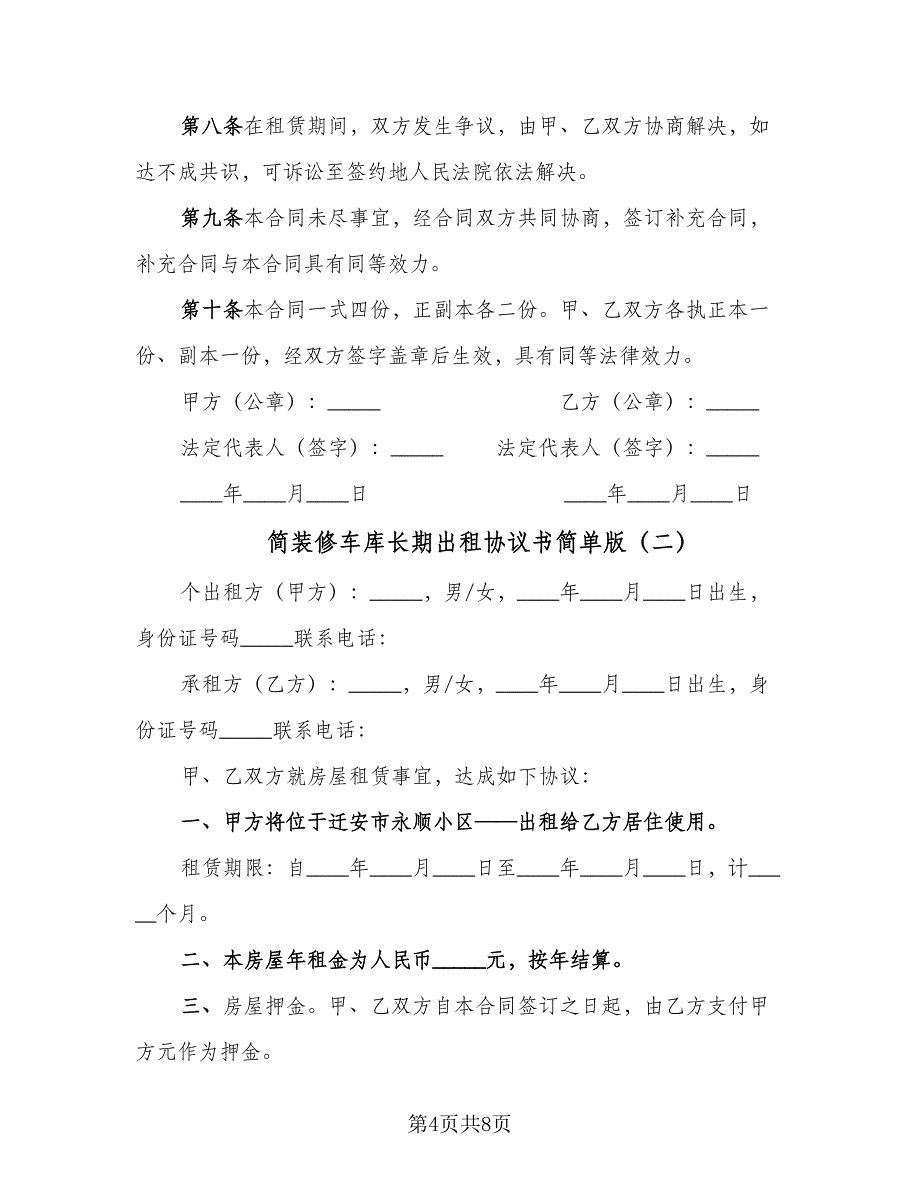 第八条在租赁期间，双方发生争议，由甲、乙双方协商解决，如
达不成共识，可诉讼至签约地人民法院依法解决。
第九条本合同未尽事宜，经合同双方共同协商，签订补充合同，
补充合同与本合同具有同等效力。
第十条本合同一式四份，正副本各二份。甲、乙双方各执正本一
份、副本一份，经双方签字盖章后生效，具有同等法律效力。
甲方（公章）：_____ 乙方（公章）：_____
法定代表人（签字）：_____ 法定代表人（签字）：_____
____年____月____日 ____年____月____日
简装修车库长期出租协议书简单版（二）
个出租方（甲方）：_____，男/女，____年____月____日出生，
身份证号码_____联系电话：
承租方（乙方）：_____，男/女，____年____月____日出生，身
份证号码_____联系电话：
甲、乙双方就房屋租赁事宜，达成如下协议：
一、甲方将位于迁安市永顺小区——出租给乙方居住使用。
租赁期限：自____年____月____日至____年____月____日，计___
__个月。
二、本房屋年租金为人民币_____元，按年结算。
三、房屋押金。甲、乙双方自本合同签订之日起，由乙方支付甲
方元作为押金。
第4页共8页